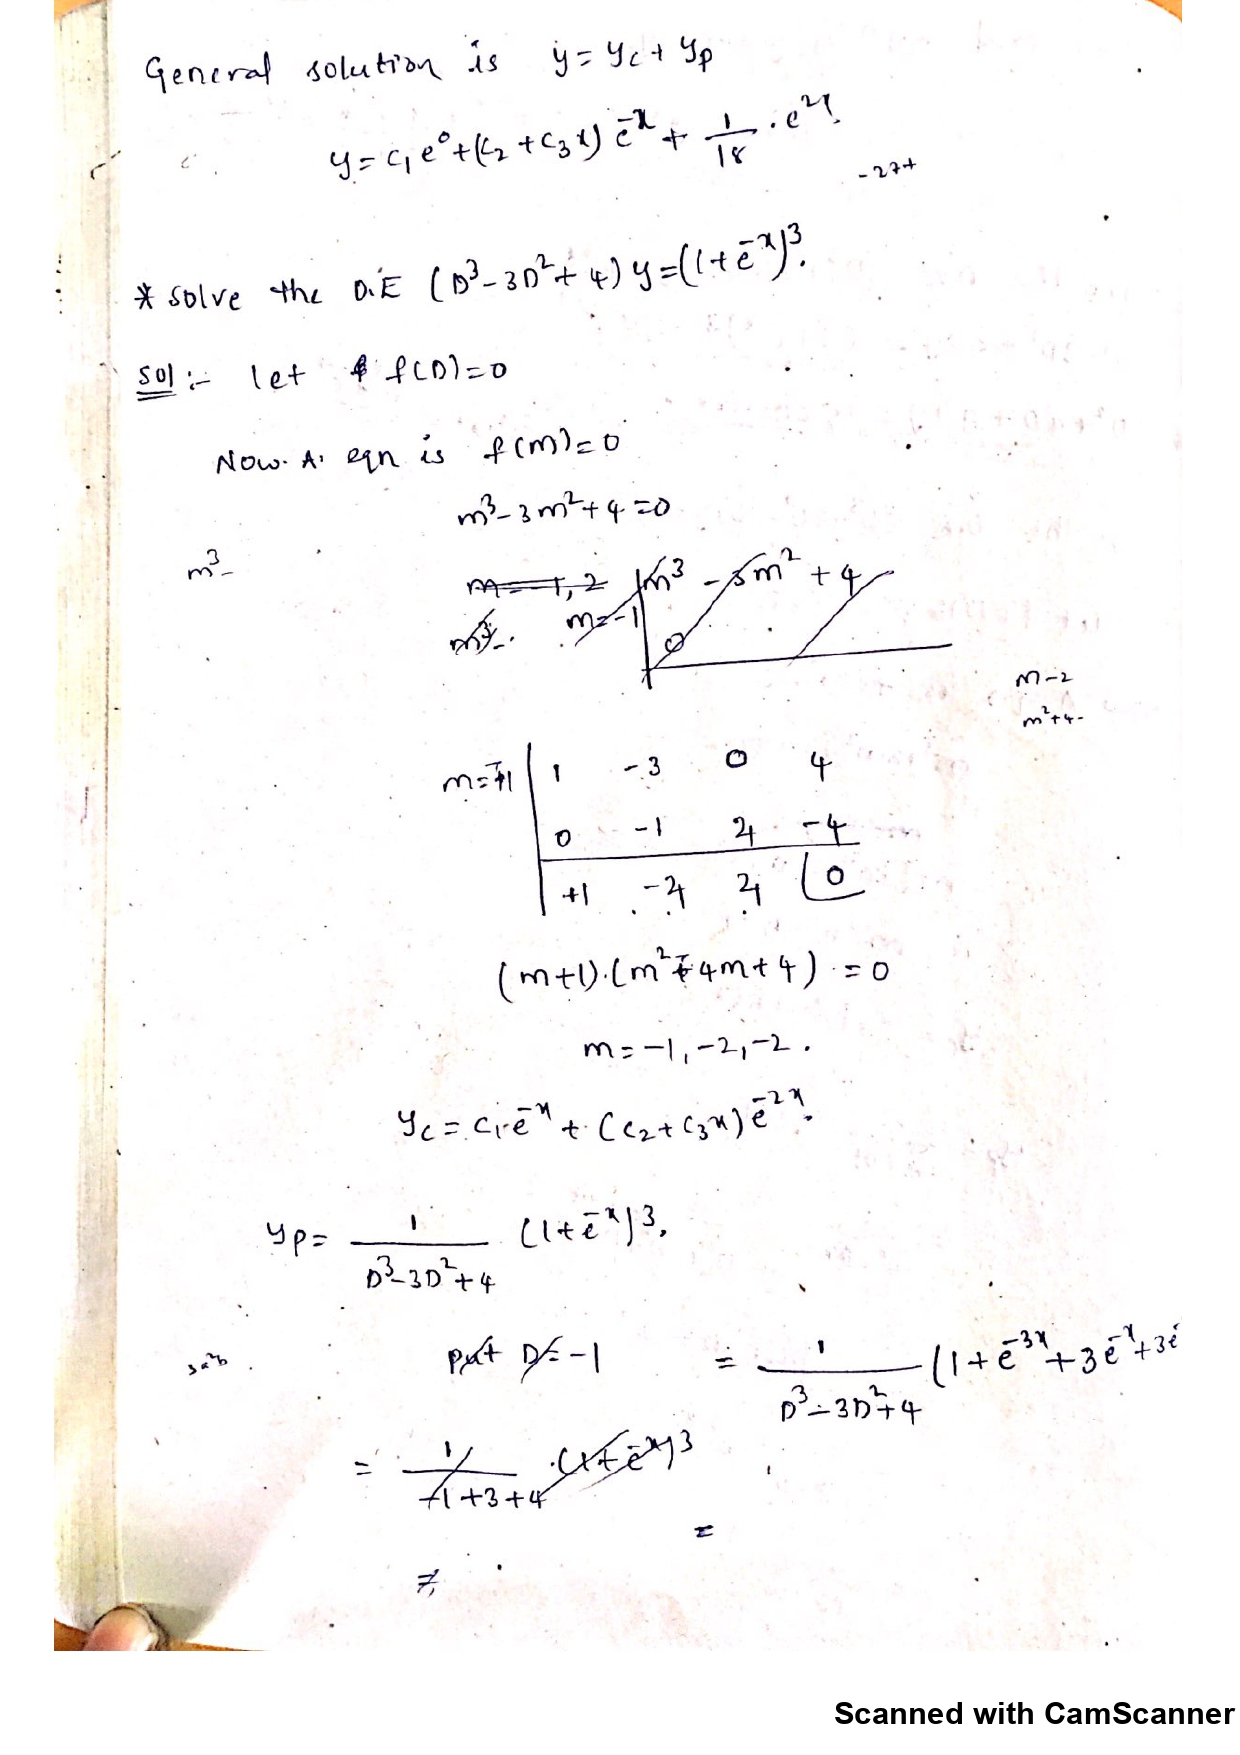 General solution is y = yc + yp
y = c₁e⁰ + (c₂ + c₃x) e⁻ˣ + 1/18 · e²ˣ.
-27+
* solve the D.E (D³ - 3D² + 4) y = (1 + e⁻ˣ)³.
Sol :- let f(D) = 0
Now. A. eqn is f(m) = 0
m³ - 3m² + 4 = 0
m³-
m = -1, 2 m³ - 3m² + 4
m³-. m = -1
0
m-2
m²+4-
m = -1 | 1 -3 0 4
0 -1 4 -4
+1 -4 4 0
(m+1).(m² - 4m + 4) = 0
m = -1, -2, -2.
yc = c₁e⁻ˣ + (c₂ + c₃x) e⁻²ˣ.
yp = 1/(D³ - 3D² + 4) (1 + e⁻ˣ)³.
3a²b. put D = -1 = 1/(D³ - 3D² + 4) (1 + e⁻³ˣ + 3e⁻ˣ + 3e⁻
= 1/(-1 + 3 + 4) . (1 + e⁻ˣ)³
=
=
Scanned with CamScanner